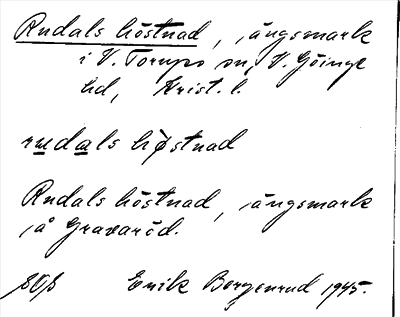 Rudals höstnad, ängsmark
i V. Torups sn, V. Göinge
hd, Krist. l.
rudals höstnad
Rudals höstnad, ängsmark
å Gravaröd.
Erik Borgenrud 1945.